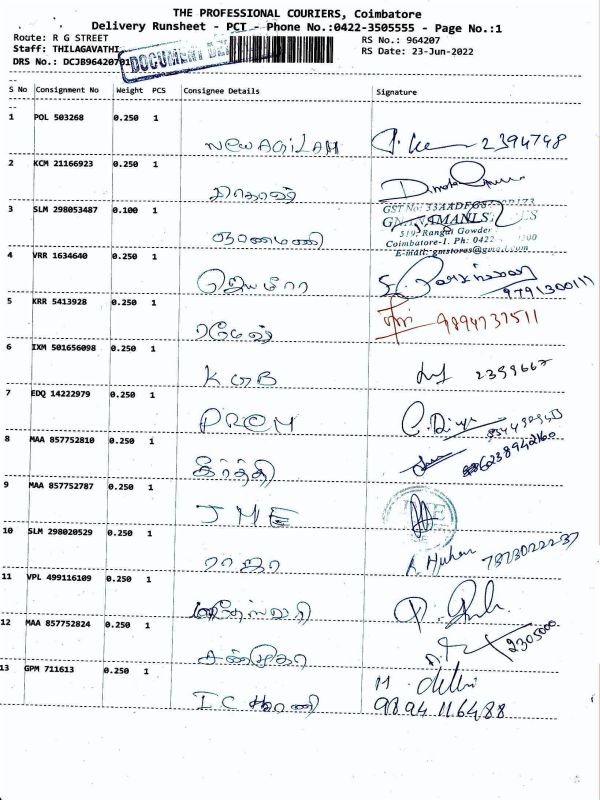 THE PROFESSIONAL COURIERS, Coimbatore
Delivery Runsheet - PCT - Phone No.:0422-3505555 - Page No.:1
Route: R G STREET RS No.: 964207
Staff: THILAGAVATHI RS Date: 23-Jun-2022
DRS No.: DCJB96420701 DOCUMENT
S No Consignment No Weight PCS Consignee Details Signature
1 POL 503268 0.250 1
NEW AGILAM 2394798
2 KCM 21166923 0.250 1
3 SLM 298053487 0.100 1
GST No: 33AADFG
519, Rangai Gowder
ஞானமணி Coimbatore-1. Ph: 0422
E-mail: gmstores@gmail.com
4 VRR 1634640 0.250 1
ஜெயசோ
9791300111
5 KRR 5413928 0.250 1
ரமேஷ் 9894737511
6 IXM 501656098 0.250 1
KGB 2359667
7 EDQ 14222979 0.250 1
PROM C. Divya
8 MAA 857752810 0.250 1
கீர்த்தி 6238942160
9 MAA 857752787 0.250 1
JME
10 SLM 298020529 0.250 1
ராஜா 7373022237
11 VPL 499116109 0.250 1
12 MAA 857752824 0.250 1
சண்முகா 2305000
13 GPM 711613 0.250 1
IC காரணி M.
9894 116488